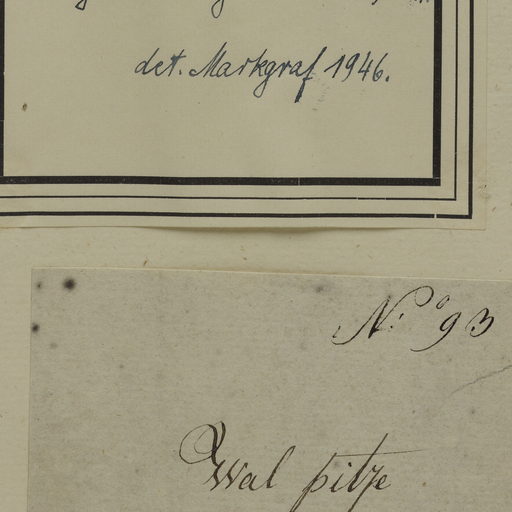 det. Markgraf 1946.
N.º 93
Wal pitze